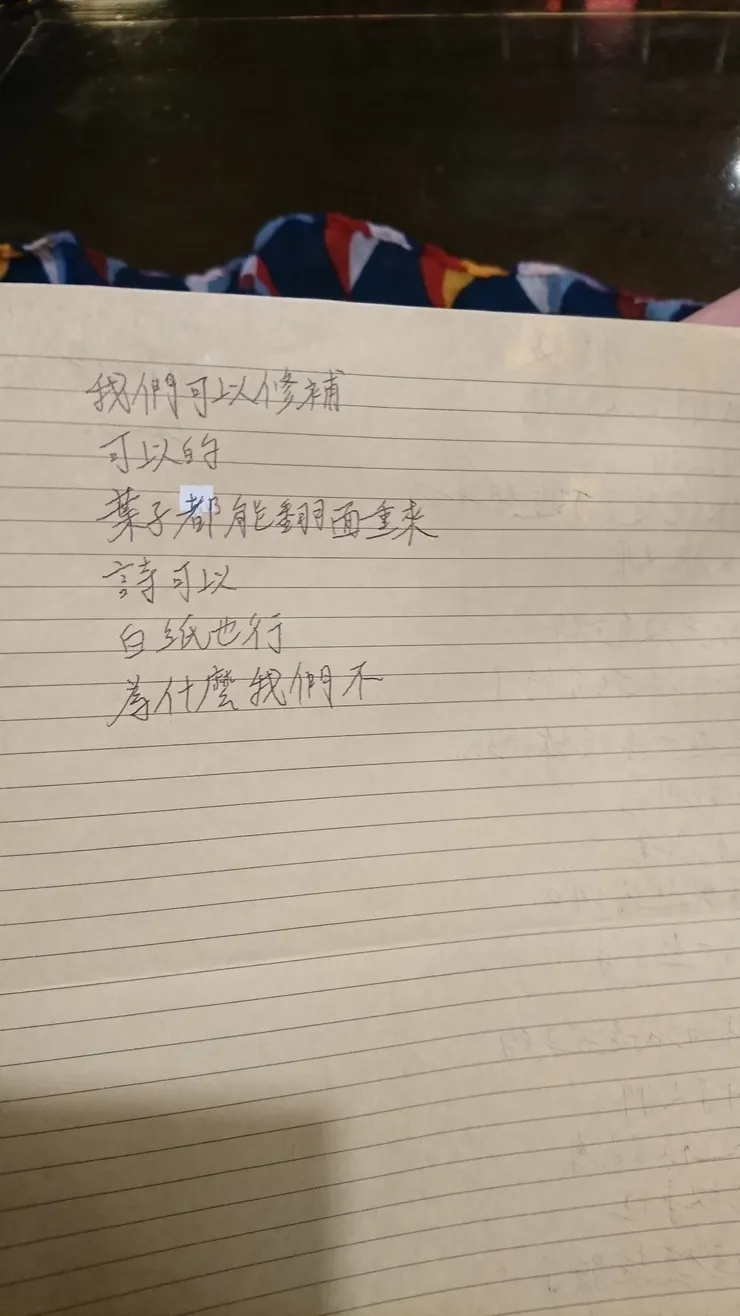 我們可以修補
可以的
葉子都能翻面重來
詩可以
白紙也行
為什麼我們不